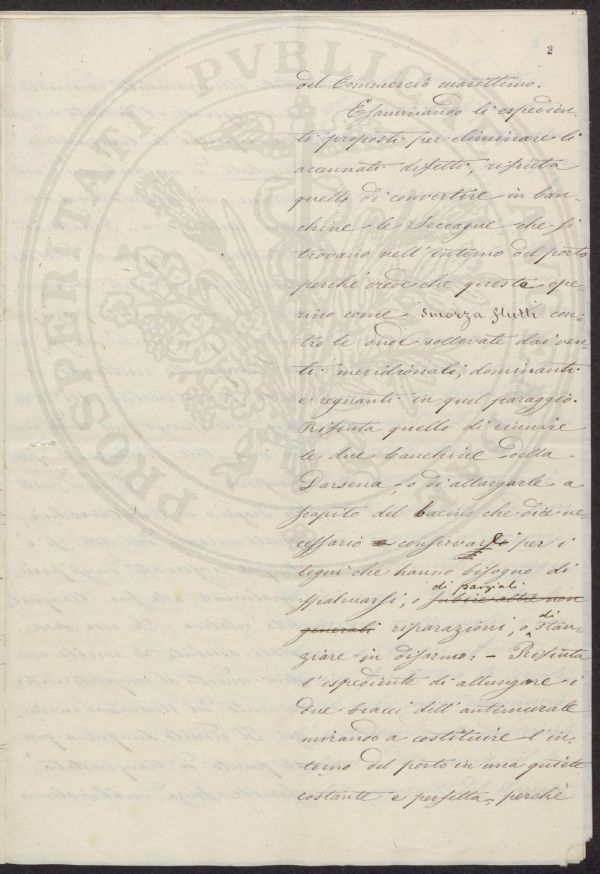 2
del Commercio marittimo.
Esaminando li espedien-
ti proposti per eliminare li
accennati difetti, rifiuta
quello di convertire in ban-
chine le Seccagne che si
trovano nell'interno del porto
perchè crede che queste ope-
rino come smorza flutti con-
tro le onde sollevate dai ven-
ti meridionali, dominanti
e regnanti in quel paraggio.
Rifiuta quello di riunire
le due banchine della
Darsena, o di allargarle a
scapito del bacino che dice ne-
cessario conservarsi per i
legni che hanno bisogno di
spalmarsi, o di parziali
generali riparazioni, o di stan-
ziare in disarmo: – Rifiuta
l'espediente di allungare i
due bracci dell'antemurale
mirando a costituire l'in-
terno del porto in una quiete
costante e perfetta, perchè
PROSPERITATI PVBLICAE